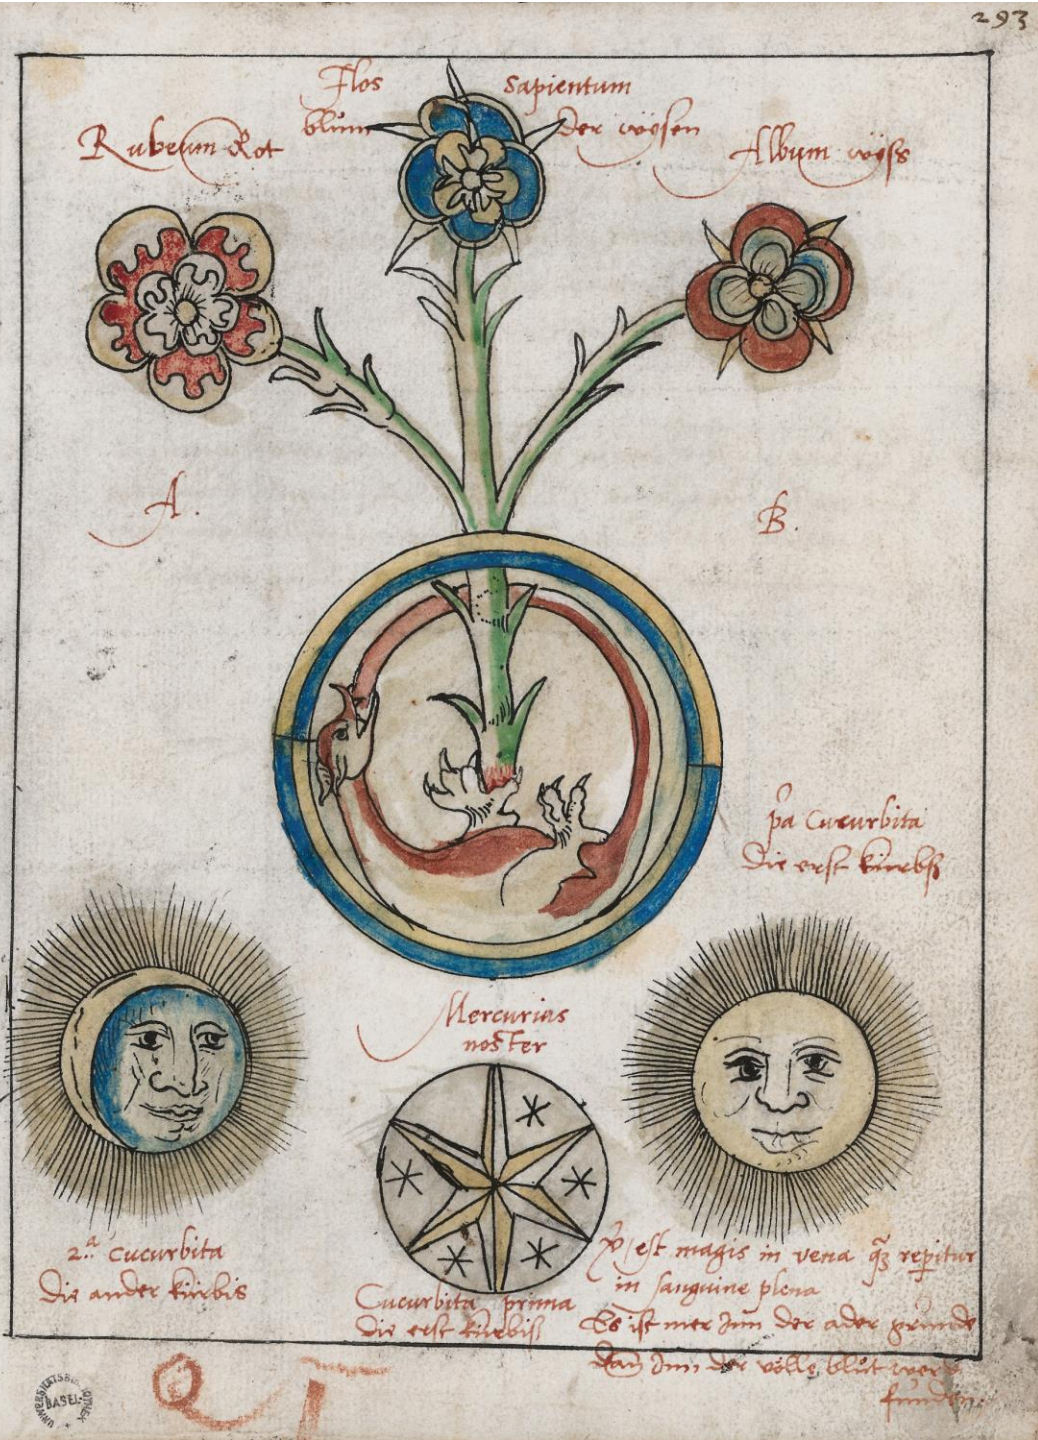 293
Flos Sapientum
blům der wÿsen
Rubeum Rot
Album wÿss
A.
B.
p̃a Cucurbita
die erst kürbß
Mercurius
noster
2.ª Cucurbita
die ander kürbis
Cucurbita prima
die erst kürbiß
est magis in vena q̃ʒ reperitur
in sanguine plena
Es ist mer Inn der ader
dañ Inn der völle blůt
funden.
UNIVERSITÄTSBIBLIOTHEK BASEL